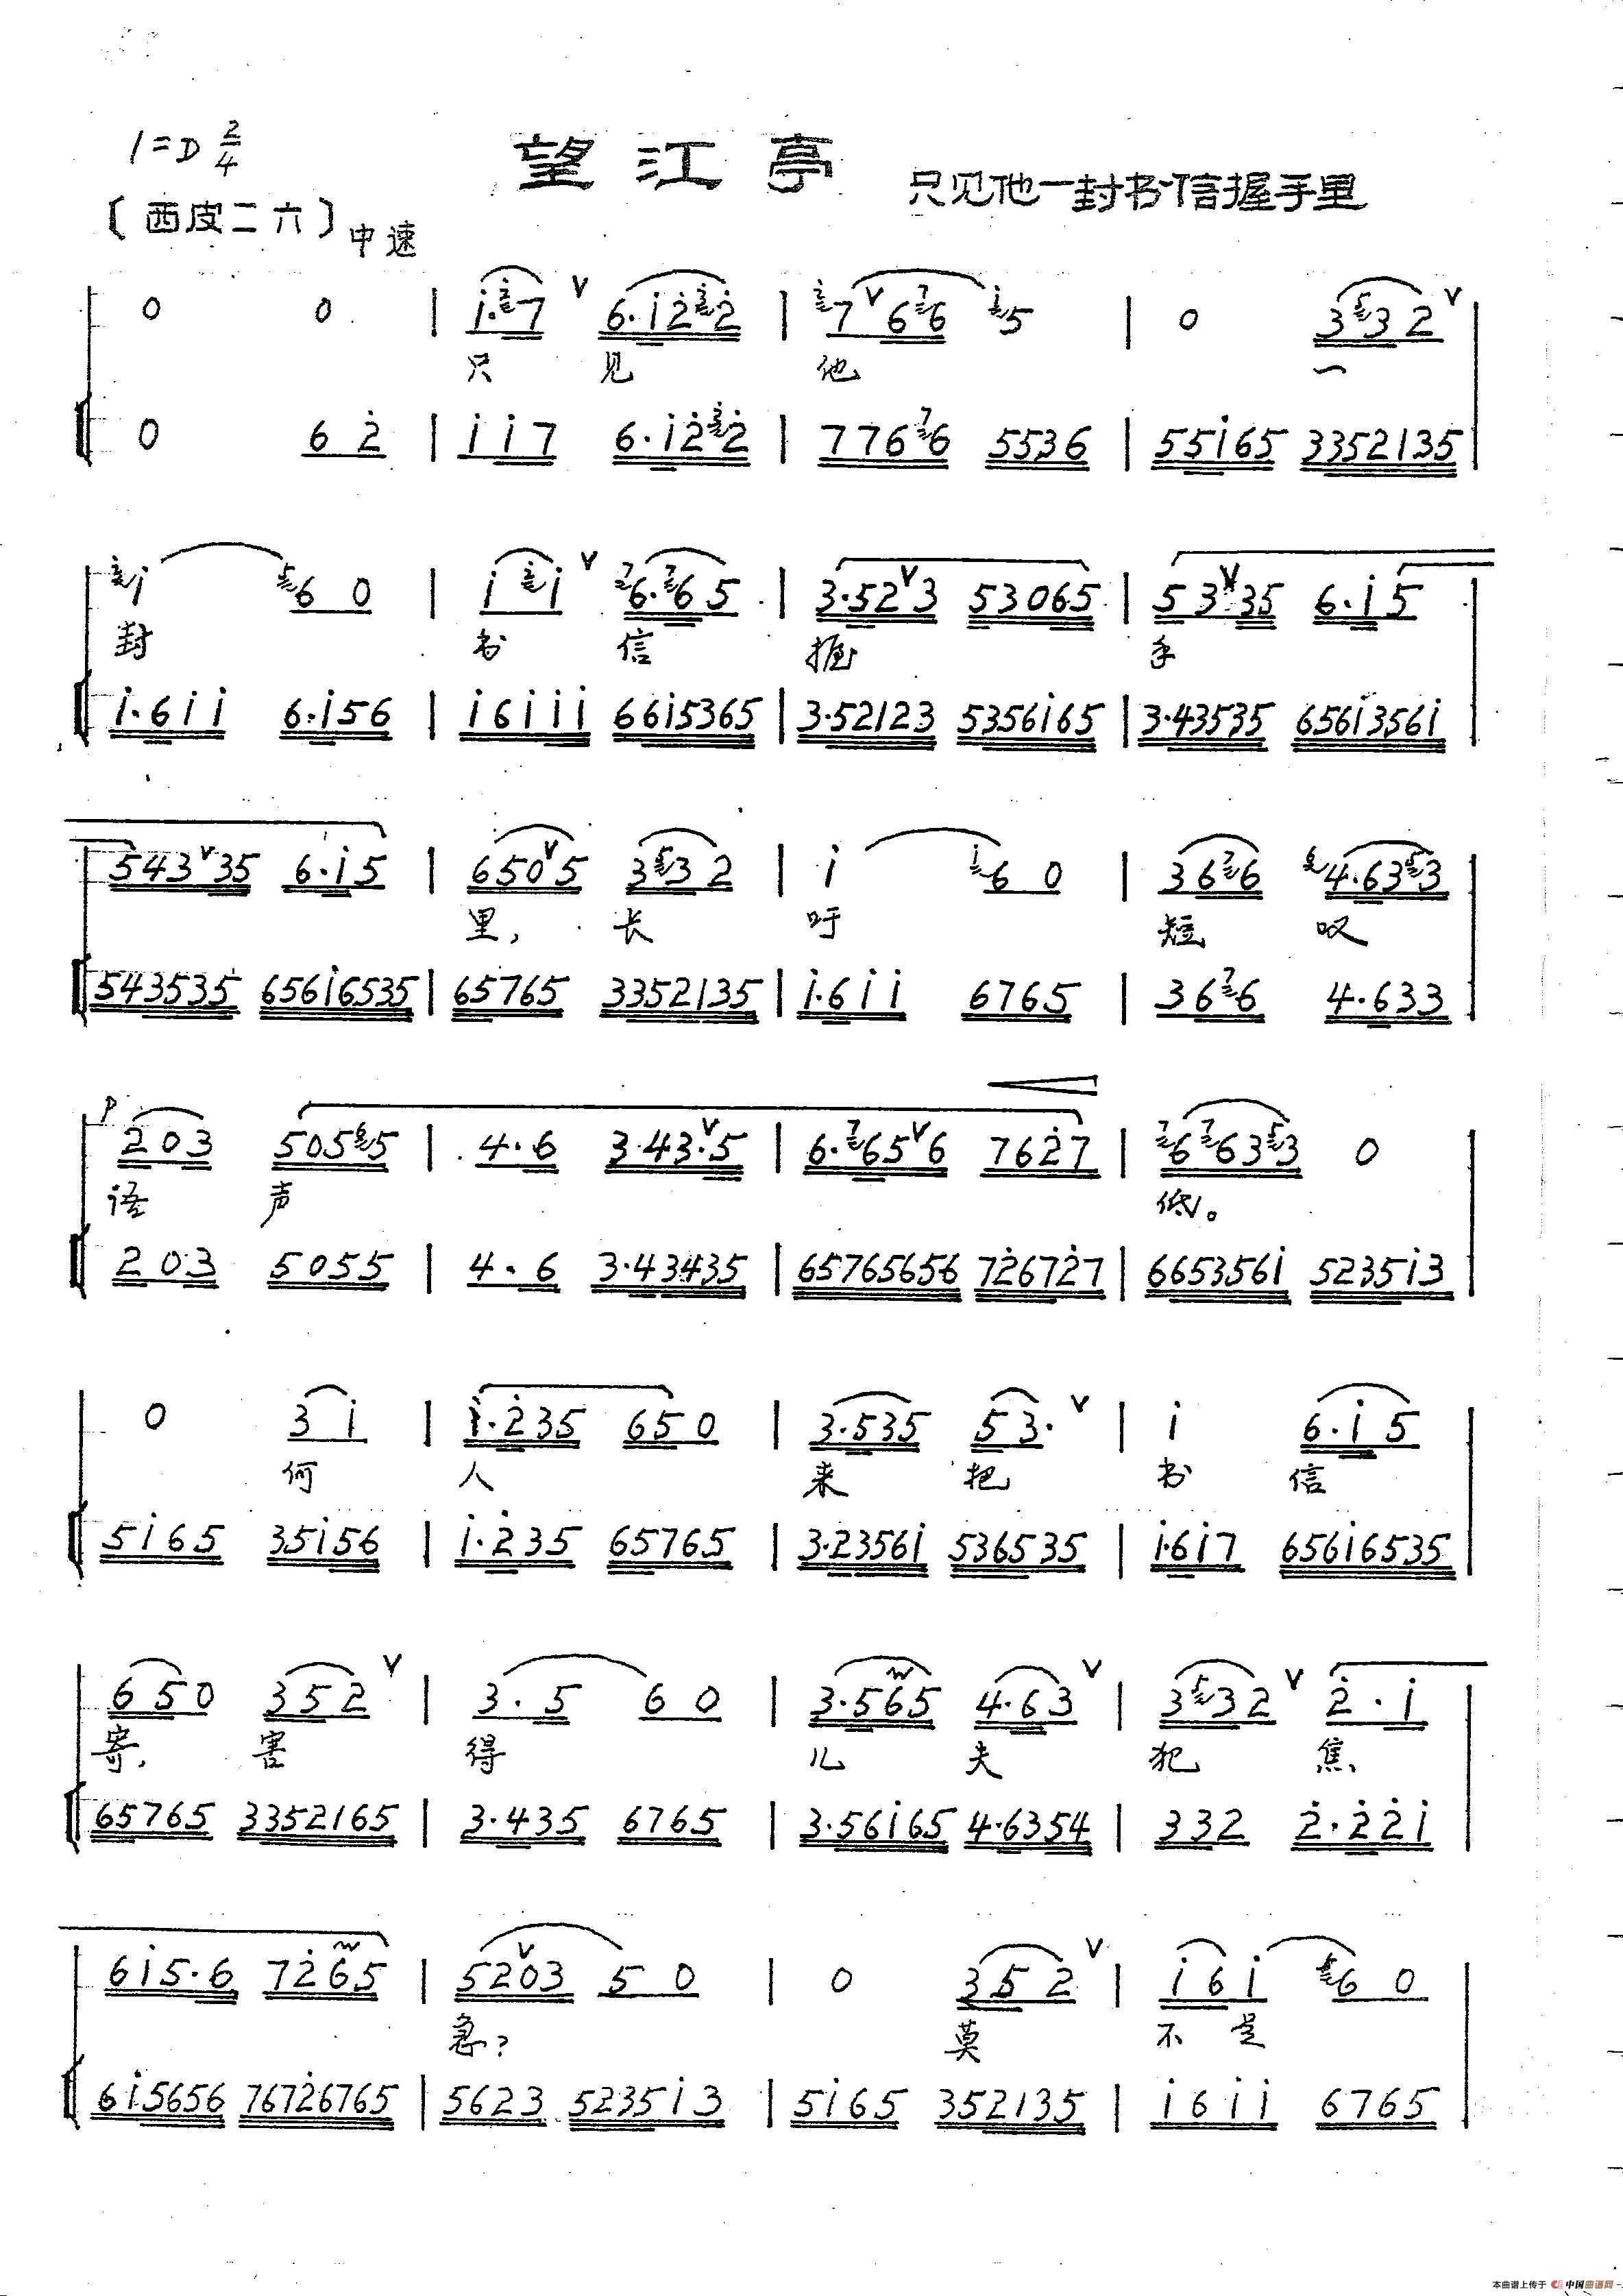 1=D 2/4
望江亭 只见他一封书信握手里
〔西皮二六〕中速
0 0 | i·7 ∨ 6·i22 | 7 ∨ 66 5 | 0 332 ∨ |
只 见 他 一
0 62 | ii7 6·i22 | 7766 5536 | 55i65 3352135 |
i 60 | ii ∨ 6·65 | 3·52∨3 53065 | 53∨35 6·i5
封 书 信 握 手
i·6ii 6·i56 | i6iii 66i5365 | 3·52123 5356i65 | 3·43535 656i3561 |
543∨35 6·i5 | 650∨5 332 | i 60 | 366 4·633
里, 长 吁 短 叹
543535 656i6535 | 65765 3352135 | i·6ii 6765 | 366 4·633 |
P
203 5055 | 4·6 3·43·∨5 | 6·65∨6 7627 | 6633 0
语 声 低。
203 5055 | 4·6 3·43435 | 65765656 726727 | 665356i 5235i3 |
0 3i | i·235 650 | 3·535 53· ∨ | i 6·i5
何 人 来 把 书 信
5i65 35i56 | i·235 65765 | 3·2356i 536535 | i·6i7 656i6535 |
650 352 ∨ | 3·5 60 | 3·565 4·63 ∨ | 332 ∨ 2·i
寄, 害 得 儿 夫 犯 焦
65765 3352165 | 3·435 6765 | 3·56i65 4·6354 | 332 2·22i |
6i5·6 7265 | 5203 50 | 0 352 ∨ | i6i 60
急? 莫 不 是
6i5656 76726765 | 5623 5235i3 | 5i65 352135 | i6ii 6765 |
本曲谱上传于 中国曲谱网